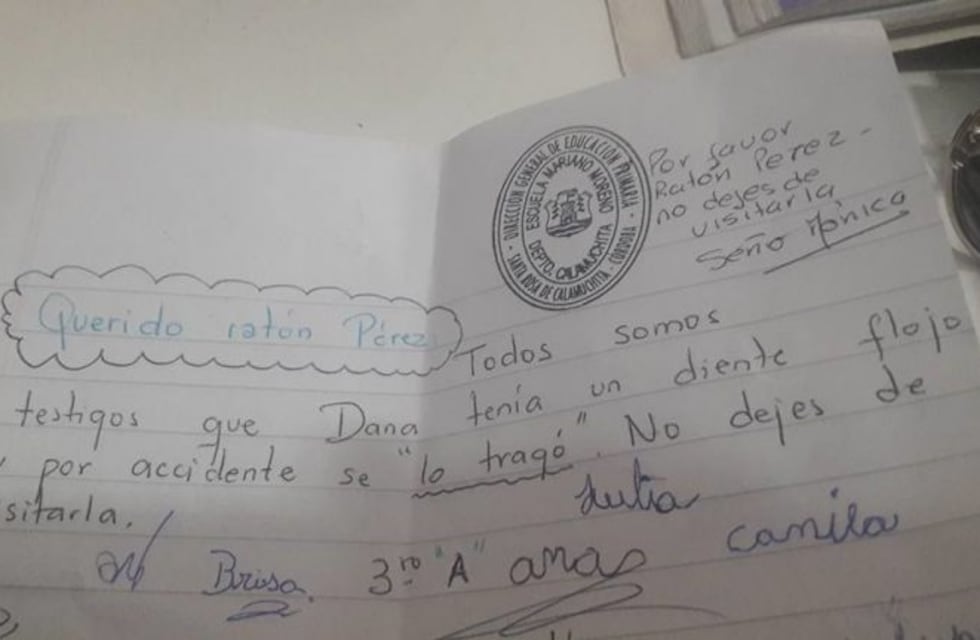 DIRECCIÓN GENERAL DE EDUCACIÓN PRIMARIA
ESCUELA MARIANO MORENO
DEPTO. CALAMUCHITA
SANTA ROSA DE CALAMUCHITA - CÓRDOBA -
Por favor
Ratón Perez -
no dejes de
visitarla
Seño Mónica
Querido ratón Pérez
Todos somos
testigos que Dana tenía un diente flojo
y por accidente se "lo tragó". No dejes de
sitarla.
Brisa. 3ro "A" camila